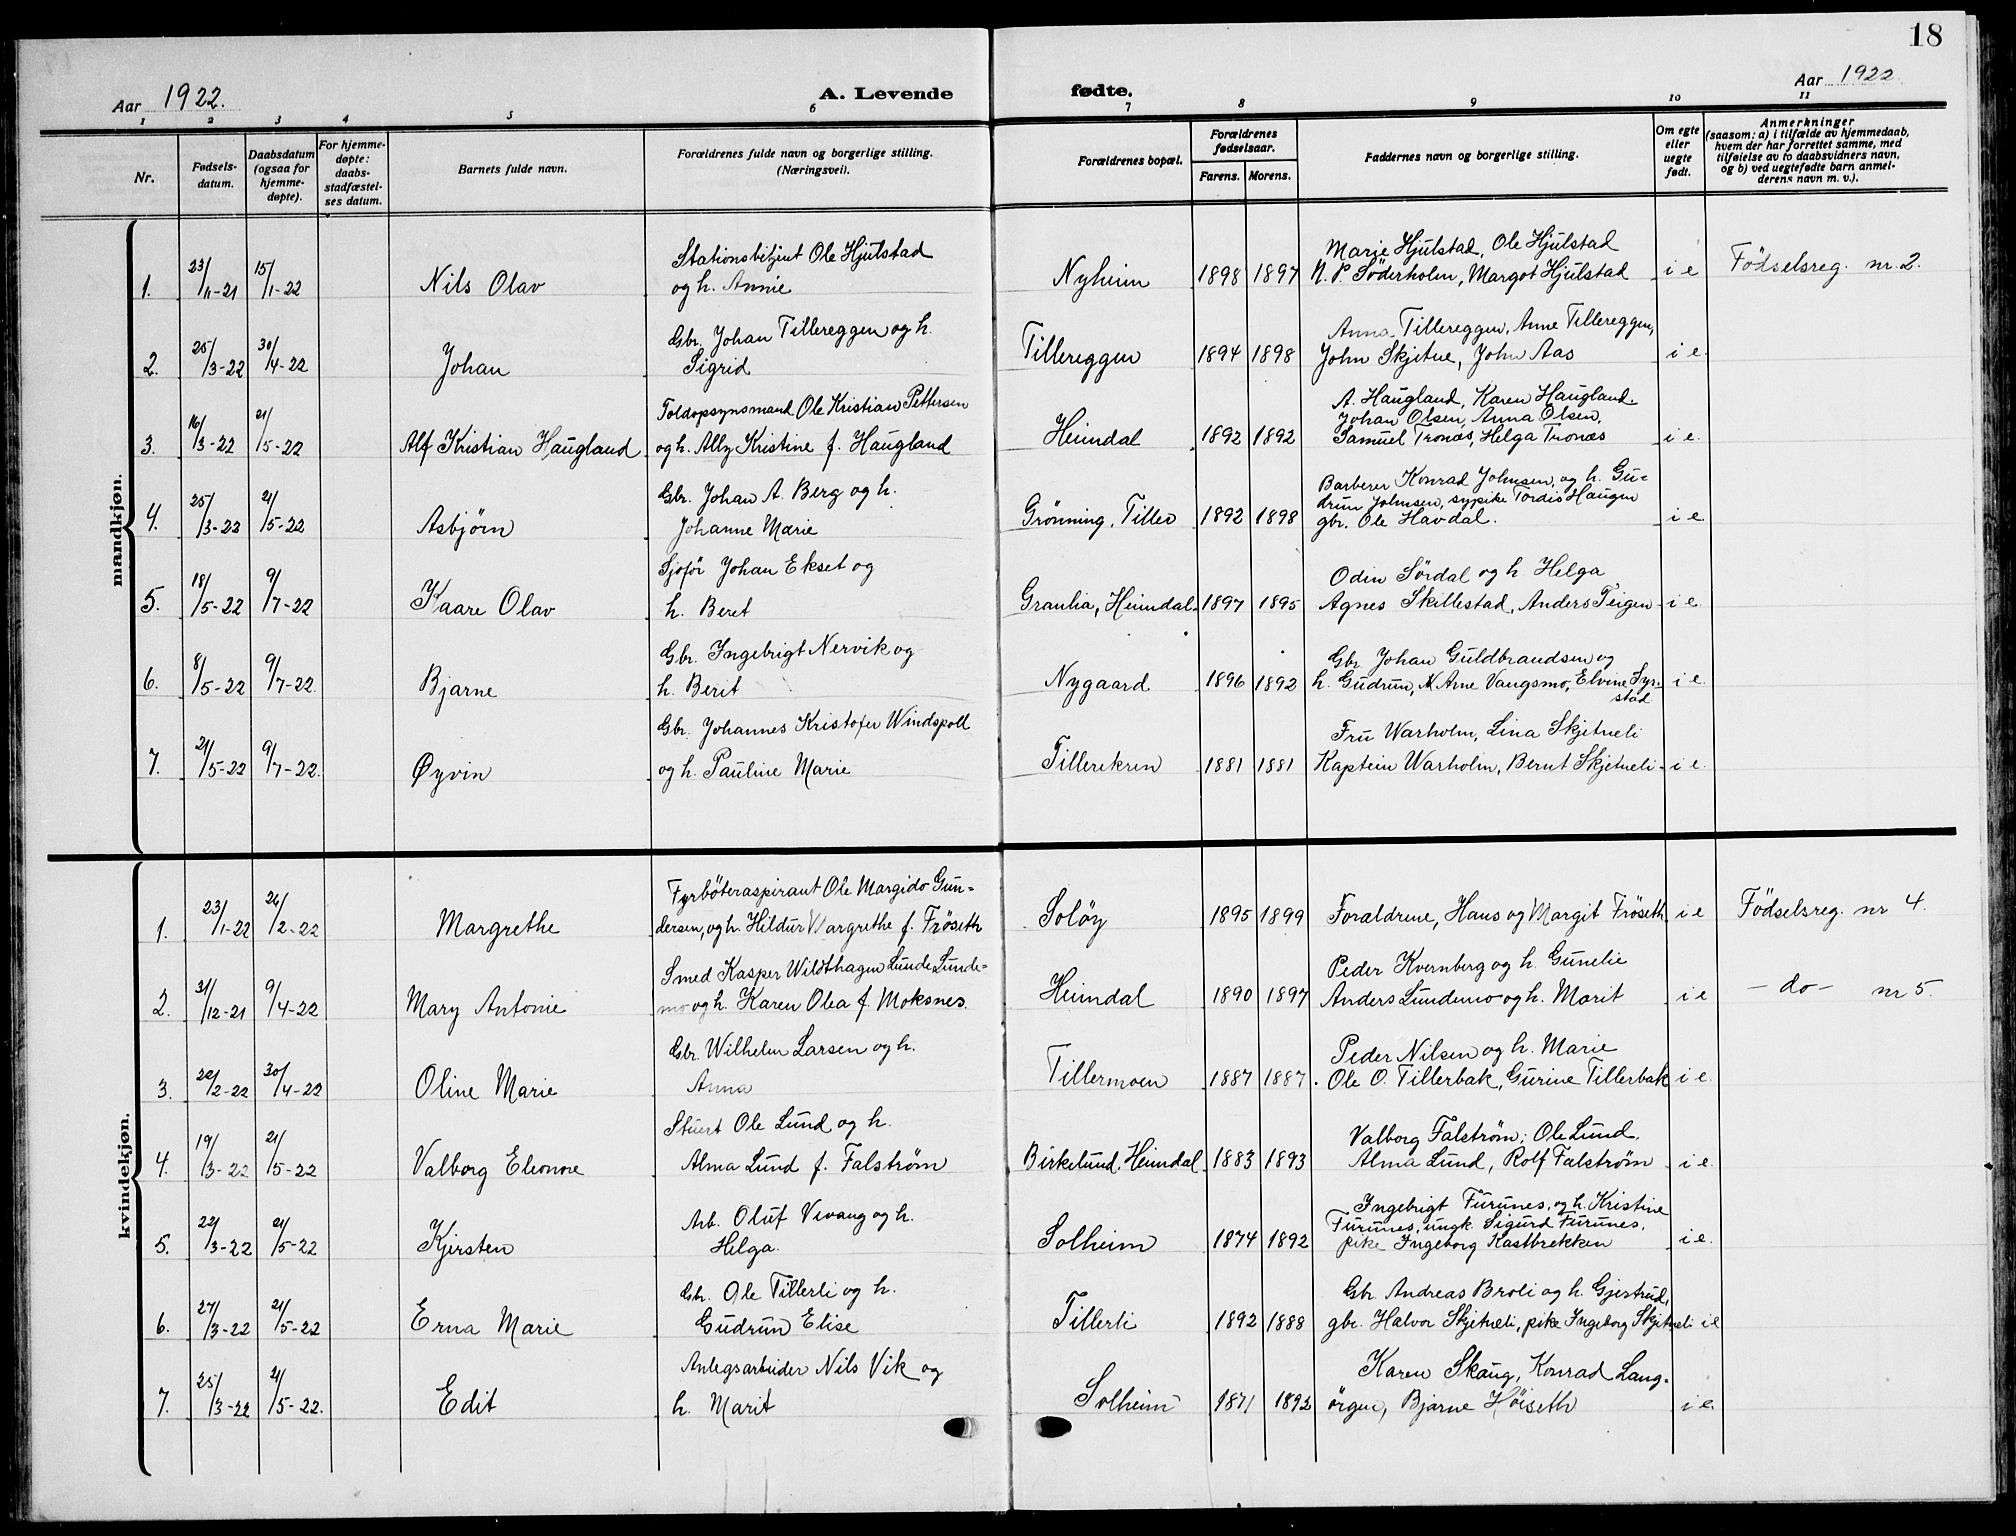 18
Aar 1922.
A. Levende fødte.
Aar 1922
1 2 3 4 5 6 7 8 9 10 11
Nr.
Fødsels-
datum.
Daabsdatum
(ogsaa for
hjemme-
døpte).
For hjemme-
døpte:
daabs-
stadfæstel-
ses datum.
Barnets fulde navn.
Forældrenes fulde navn og borgerlige stilling.
(Næringsvei).
Forældrenes bopæl.
Forældrenes
fødselsaar.
Farens. Morens.
Faddernes navn og borgerlige stilling.
Om egte
eller
uegte
født.
Anmerkninger
(saasom: a) i tilfælde av hjemmedaab,
hvem der har forrettet samme, med
tilføielse av to daabsvidners navn,
og b) ved uegtefødte barn anmel-
derens navn m. v.).
mandkjøn.
1. 23/11-21 15/1-22 Nils Olav
Stationsbitjent Ole Hjulstad
og h. Annie
Nyheim 1898 1897
Marie Hjulstad, Ole Hjulstad
N. P. Söderholm, Margot Hjulstad
i e Födselsreg. nr. 2.
2. 25/3-22 30/4-22 Johan
Gbr. Johan Tillereggen og h.
Sigrid
Tillereggen 1894 1898
Anna Tillereggen, Anne Tillereggen,
John Skjetne, John Aas
i e
3. 16/3-22 21/5-22 Alf Kristian Haugland
Toldopsynsmand Ole Kristian Pettersen
og h. Ally Kristine f. Haugland
Heimdal 1892 1892
A. Haugland, Karen Haugland.
Johan Olsen, Anna Olsen,
Samuel Tronæs, Helga Tronæs
i e.
4. 25/3-22 21/5-22 Asbjörn
Gbr. Johan A. Berg og h.
Johanne Marie
Grönning, Tiller 1892 1898
Barberer Konrad Johnsen, og h. Gu-
drun Johnsen, sypike Tordis Haugen
gbr. Ole Havdal.
i e
5. 18/5-22 9/7-22 Kaare Olav
Sjoför Johan Ekset og
h. Beret
Granlia, Heimdal. 1897 1895
Odin Sördal og h Helga
Agnes Skillestad, Anders Teigen
i e
6. 8/5-22 9/7-22 Bjarne
Gbr. Ingebrigt Nervik og
h. Berit
Nygaard 1896 1892
Gbr Johan Guldbrandsen og
h. Gudrun, Arne Vangsmo, Elvine Syr-
stad
i e
7. 21/5-22 9/7-22. Øyvin
Gbr. Johannes Kristofer Windspoll
og h. Pauline Marie
Tillerekren 1881 1881
Fru Warholm, Lina Skjetneli
Kaptein Warholm, Bernt Skjetneli
i e.
kvindekjøn.
1. 23/1-22 26/2-22 Margrethe
Fyrböteraspirant Ole Margido Gun-
dersen, og h. Hildur Margrethe f. Fröseth
Soløy 1895 1899
Foraldrene, Hans og Margit Fröseth
i e Födselsreg. nr 4.
2. 31/12-21 9/4-22 Mary Antonie
Smed Kasper Wildthagen Lunde Lunde-
mo og h. Karen Olea f. Moksnes.
Heimdal 1890 1897
Peder Kvernberg og h. Gunelie
Anders Lundemo og h. Marit
i e - do - nr 5.
3. 22/2-22 30/4-22 Oline Marie
Gbr. Wilhelm Larsen og h.
Anna
Tillermoen 1887 1887
Peder Nilsen og h. Marie
Ole O. Tillerbak, Gurine Tillerbak
i e.
4. 19/3-22 21/5-22 Valborg Eleonore
Stuert Ole Lund og h.
Alma Lund f. Falström
Birkelund, Heimdal 1883 1893
Valborg Falström; Ole Lund.
Alma Lund, Rolf Falström
i e.
5. 22/3-22 21/5-22 Kjersten
Arb. Oluf Vivang og h.
Helga.
Solheim 1874 1892
Ingebrigt Furunes, og h. Kristine
Furunes, ungk. Sigurd Furunes,
pike Ingeborg Kastbrekken
i e.
6. 27/3-22 21/5-22 Erna Marie
Gbr. Ole Tillerli og h.
Gudrun Elise
Tillerli 1892 1888
Gbr. Andreas Broli og h. Gjertrud,
gbr. Halvor Skjetneli, pike Ingeborg Skjetneli
i e
7. 25/3-22 21/5-22. Edit
Anlegsarbeider Nils Vik og
h. Marit
Solheim 1871 1892
Karen Skaug, Konrad Lang-
örgen, Bjarne Höiseth
i e.